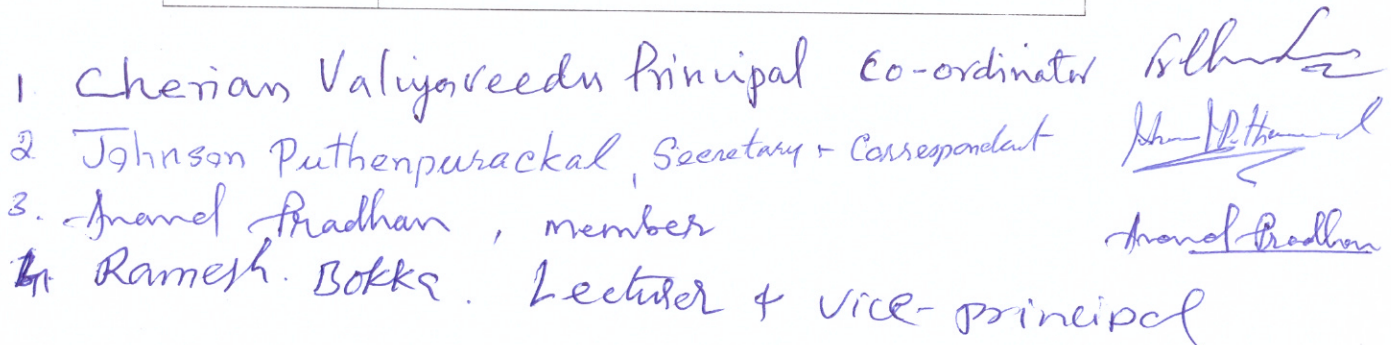 1. Cherian Valiyaveedu Principal Co-ordinator
2 Johnson Puthenpurackal, Secretary + Correspondent
3. Anand Pradhan, member Anand Pradhan
4. Ramesh. Bokka. Lecturer & Vice-principal